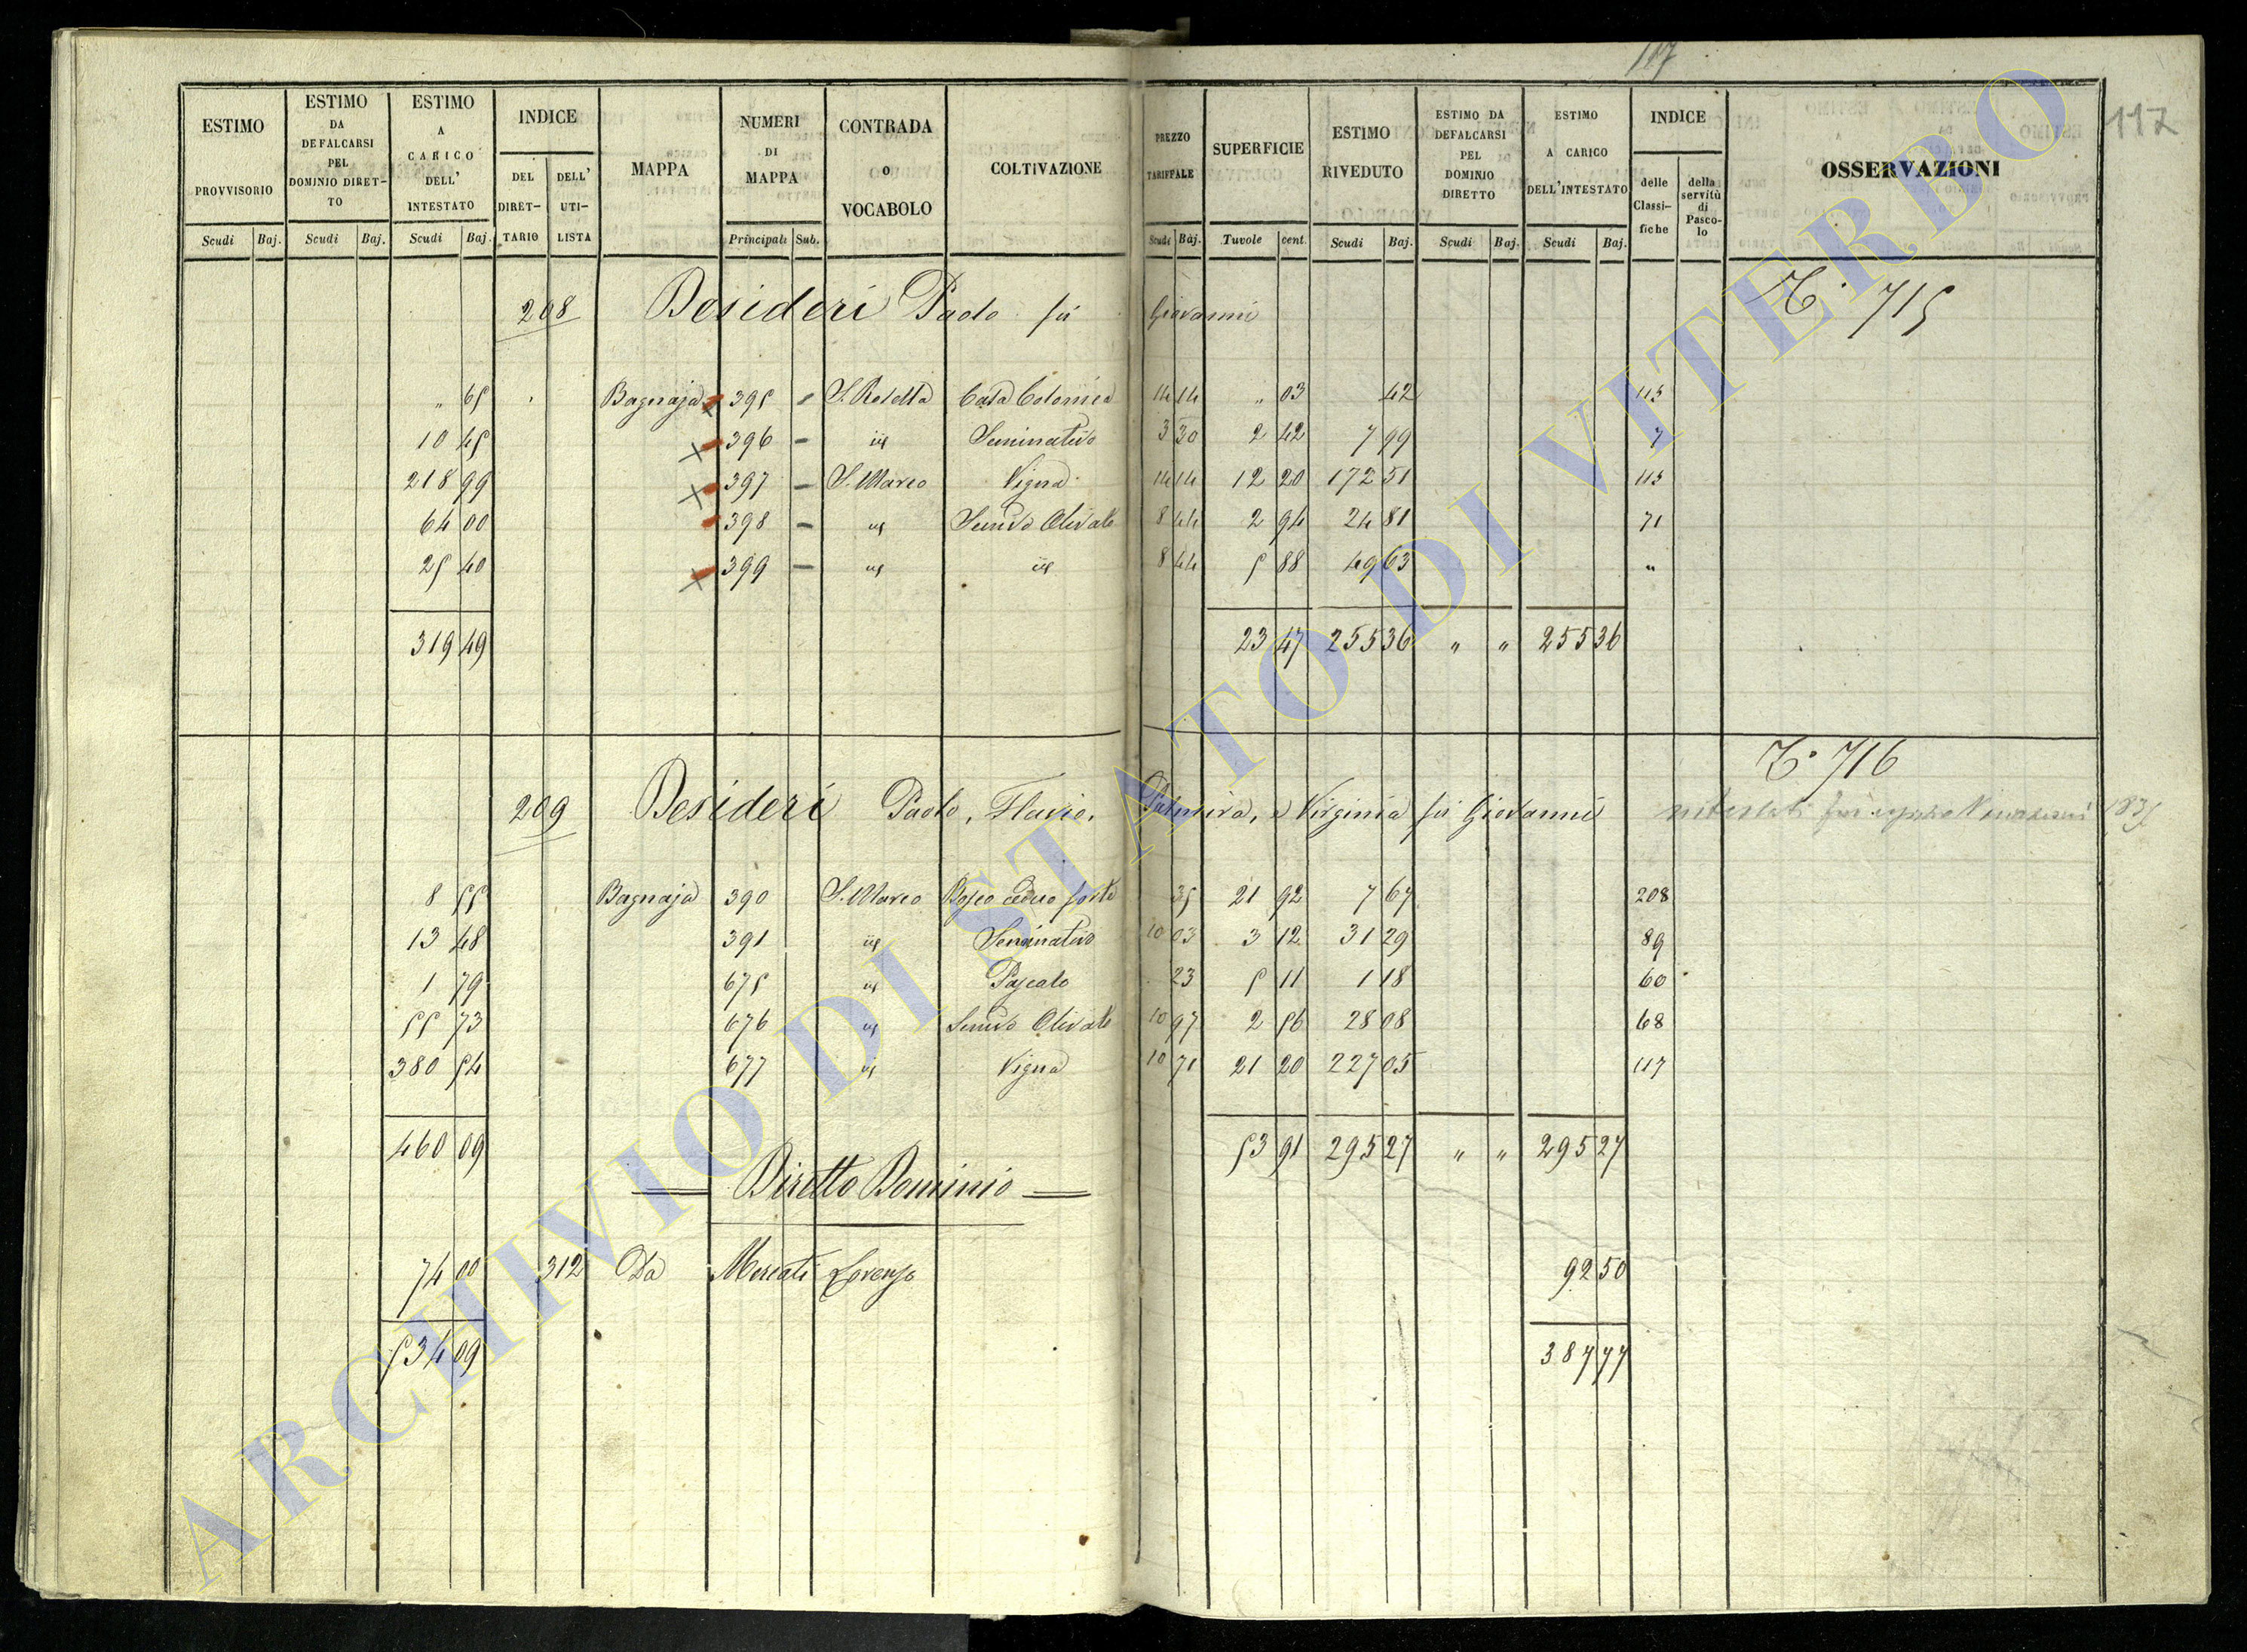 117
117
ESTIMO PROVVISORIO | ESTIMO DA DEFALCARSI PEL DOMINIO DIRETTO | ESTIMO A CARICO DELL' INTESTATO | INDICE DEL DIRETTARIO | DELL' UTILISTA | MAPPA | NUMERI DI MAPPA | CONTRADA o VOCABOLO | COLTIVAZIONE | PREZZO TARIFFALE | SUPERFICIE | ESTIMO RIVEDUTO | ESTIMO DA DEFALCARSI PEL DOMINIO DIRETTO | ESTIMO A CARICO DELL'INTESTATO | INDICE delle Classifiche | della servitù di Pascolo | OSSERVAZIONI
Scudi Baj. Scudi Baj. Scudi Baj. Principali Sub. Scudi Baj. Tavole cent. Scudi Baj. Scudi Baj. Scudi Baj.
208 Desideri Paolo fù Giovanni T. 715
„ 65 Bagnaja 395 S. Rosetta Casa Colonica 14 14 „ 03 42 115
10 45 396 iis Seminativo 3 30 2 42 7 99 7
218 99 397 S. Marco Vigna 14 14 12 20 172 51 115
64 00 398 iis Semvo Olivato 8 44 2 94 24 81 71
25 40 399 iis iis 8 44 5 88 49 63 „
319 49 23 47 255 36 „ „ 255 36
T. 716
209 Desideri Paolo, Flavio, Palmira, e Virginia fù Giovanni
8 55 Bagnaja 390 S. Marco Bosco ceduo forte 35 21 92 7 67 208
13 48 391 iis Seminativo 10 03 3 12 31 29 89
1 79 675 iis Pascolo 23 5 11 1 18 60
55 73 676 iis Semvo Olivato 10 97 2 56 28 08 68
380 54 677 iis Vigna 10 71 21 20 227 05 117
460 09 53 91 295 27 „ „ 295 27
Diretto Dominio
74 00 312 Da Mercati Lorenzo 92 50
534 09 387 77
ARCHIVIO DI STATO DI VITERBO